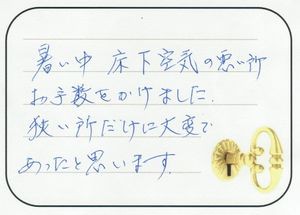 暑い中 床下空気の悪い所
お手数をかけました.
狭い所だけに大変で
あったと思います.